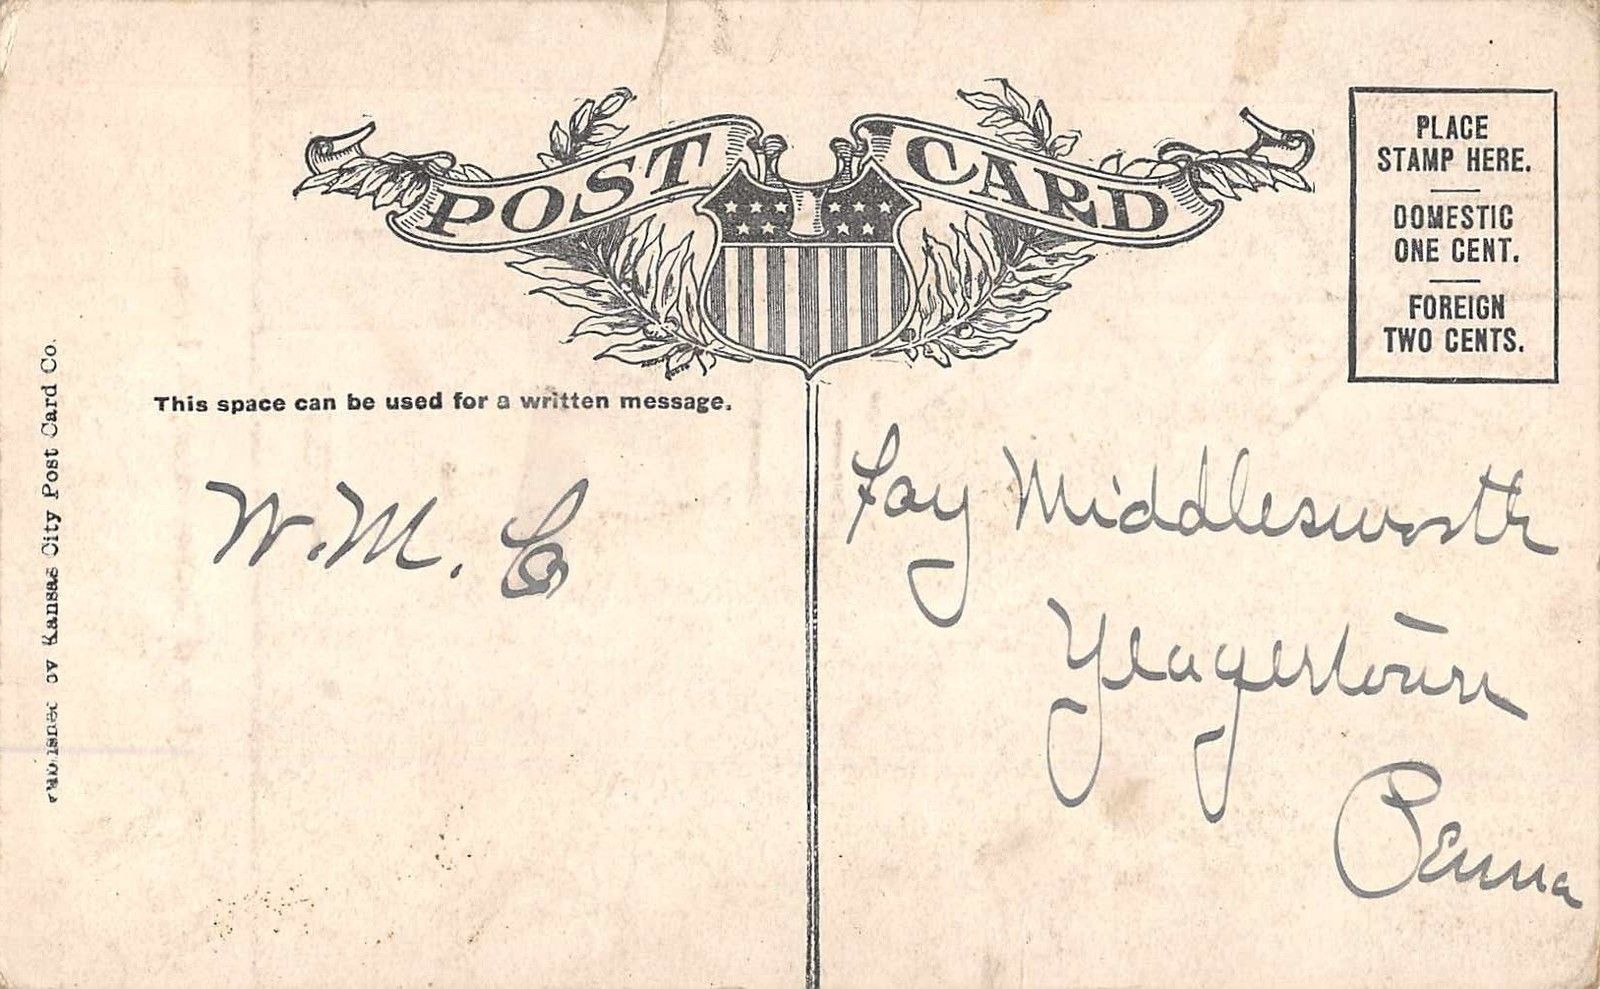 POST CARD
PLACE
STAMP HERE.
DOMESTIC
ONE CENT.
FOREIGN
TWO CENTS.
This space can be used for a written message.
W. M. Co
Fay Middlesworth
Yeagertown
Penna
Published by Kansas City Post Card Co.